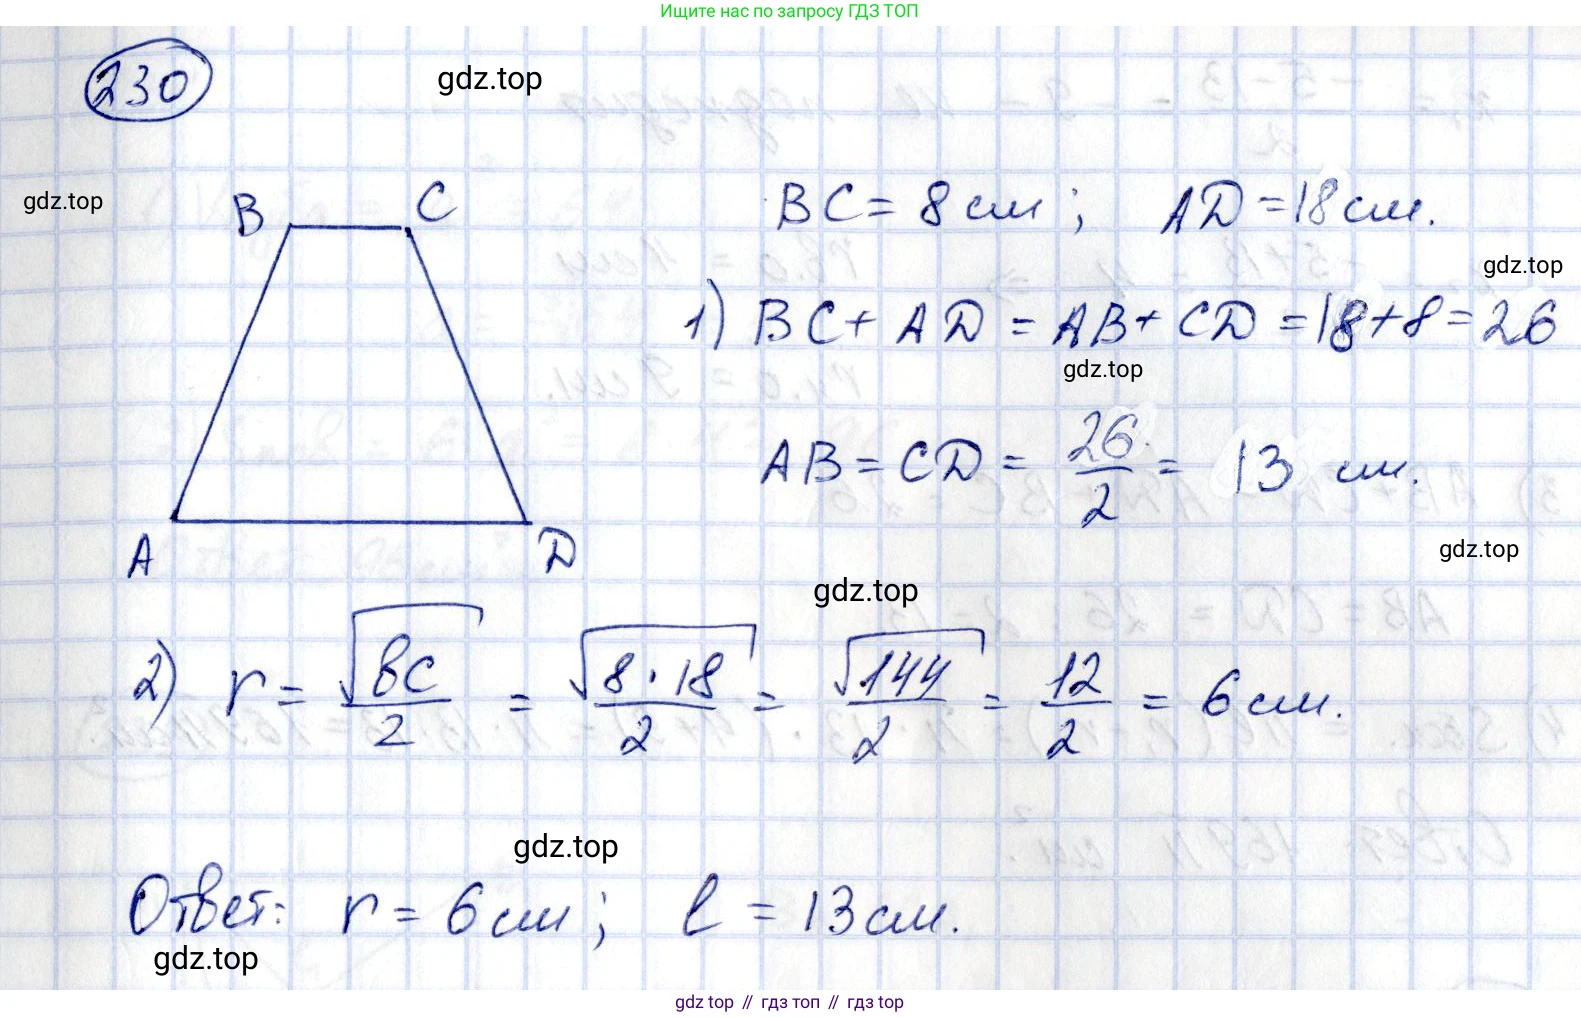 Ищите нас по запросу ГДЗ ТОП
230
gdz.top
gdz.top
B C
BC = 8 см ; AD = 18 см.
gdz.top
1) BC + AD = AB + CD = 18 + 8 = 26
gdz.top
AB = CD = 26/2 = 13 см.
A D
gdz.top
gdz.top
2) r = √BC/2 = √8·18/2 = √144/2 = 12/2 = 6 см.
gdz.top
Ответ: r = 6 см ; l = 13 см.
gdz.top
gdz top // гдз топ // гдз top